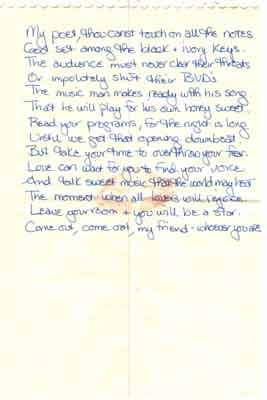 My poet, thou canst touch on all the notes
God set among the black + ivory keys.
The audience must never clear their throats
Or impolitely shift their BVD's
The music man makes ready with his song
That he will play for his own honey sweet.
Read your programs, for the night is long
Until we get that opening downbeat.
But take your time to overthrow your fear.
Love can wait for you to find your voice
And talk sweet music that the world may hear
The moment when all lovers will rejoice
Leave your room + you will be a star.
Come out, come out, my friend - whoever you are